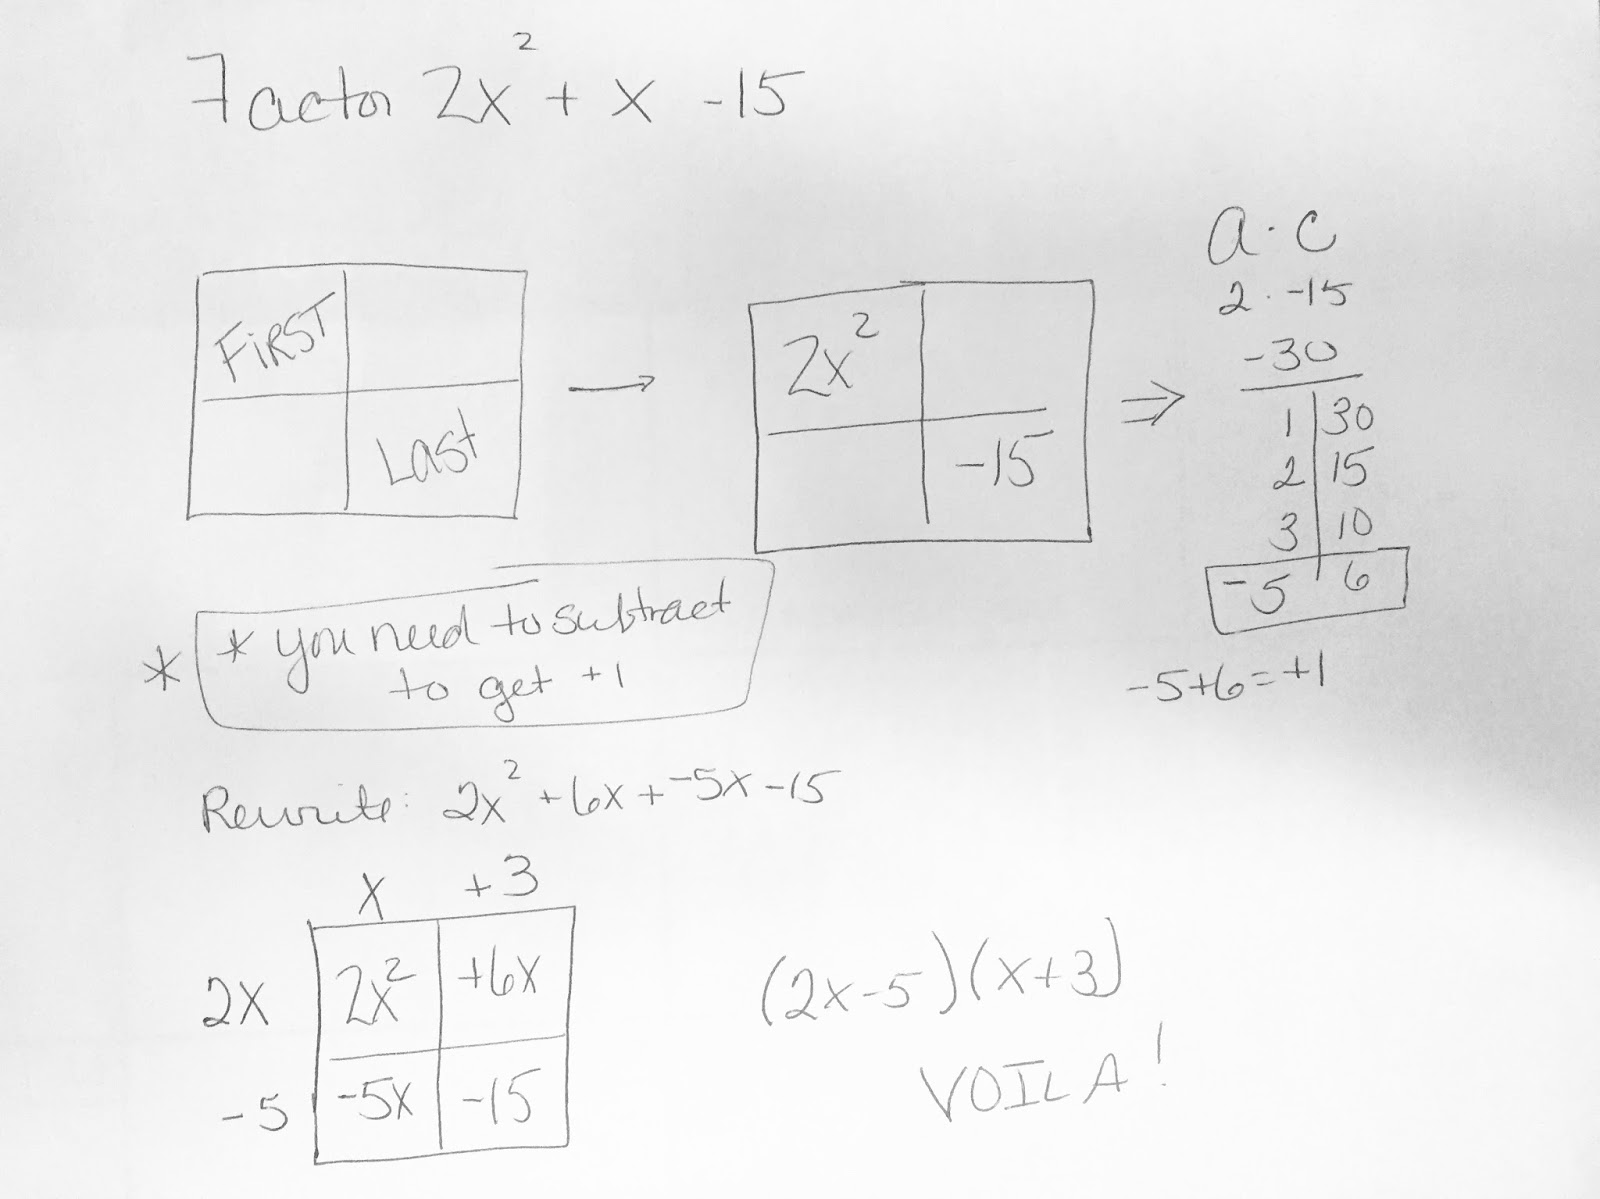 Factor 2x² + x -15
FiRST
Last
2x²
-15
a · c
2 · -15
-30
1 | 30
2 | 15
3 | 10
-5 | 6
-5+6=+1
* * you need to subtract
to get +1
Rewrite: 2x² +6x+⁻5x-15
x +3
2x 2x² +6x
-5 -5x -15
(2x-5)(x+3)
VOILA!